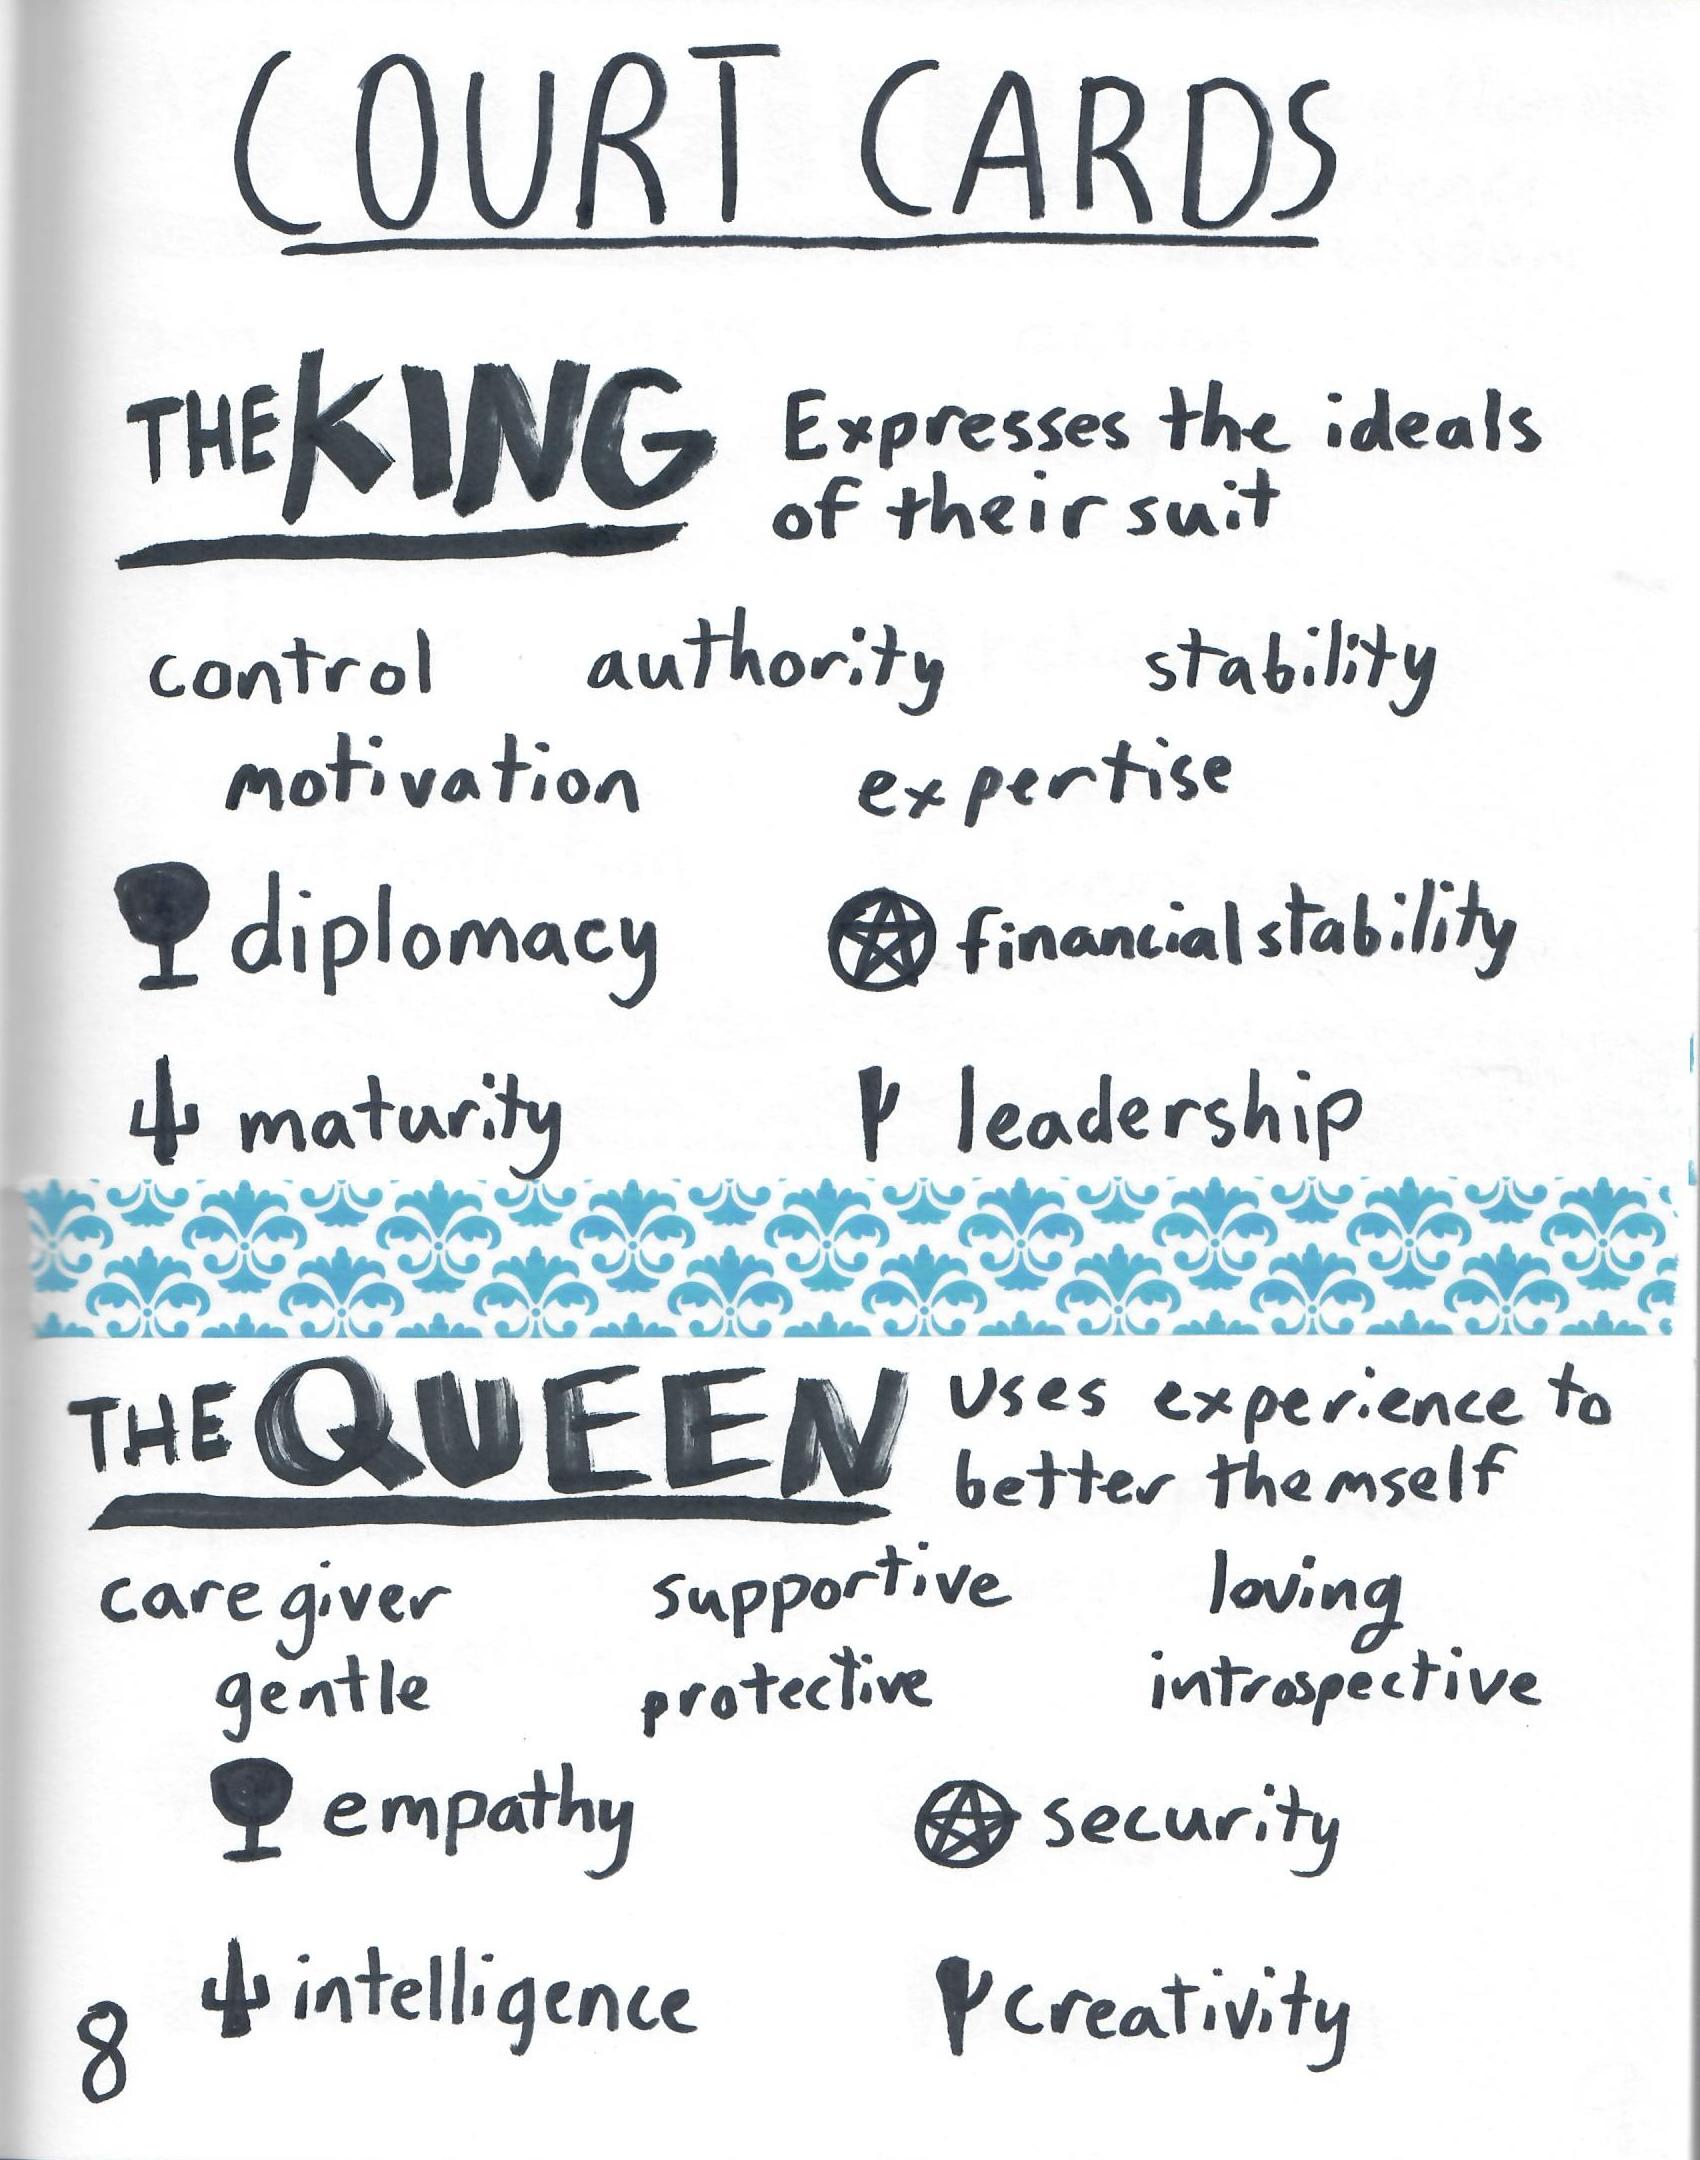 COURT CARDS
THE KING
Expresses the ideals
of their suit
control authority stability
motivation expertise
diplomacy financial stability
maturity leadership
THE QUEEN
Uses experience to
better themself
care giver supportive loving
gentle protective introspective
empathy security
intelligence creativity
8